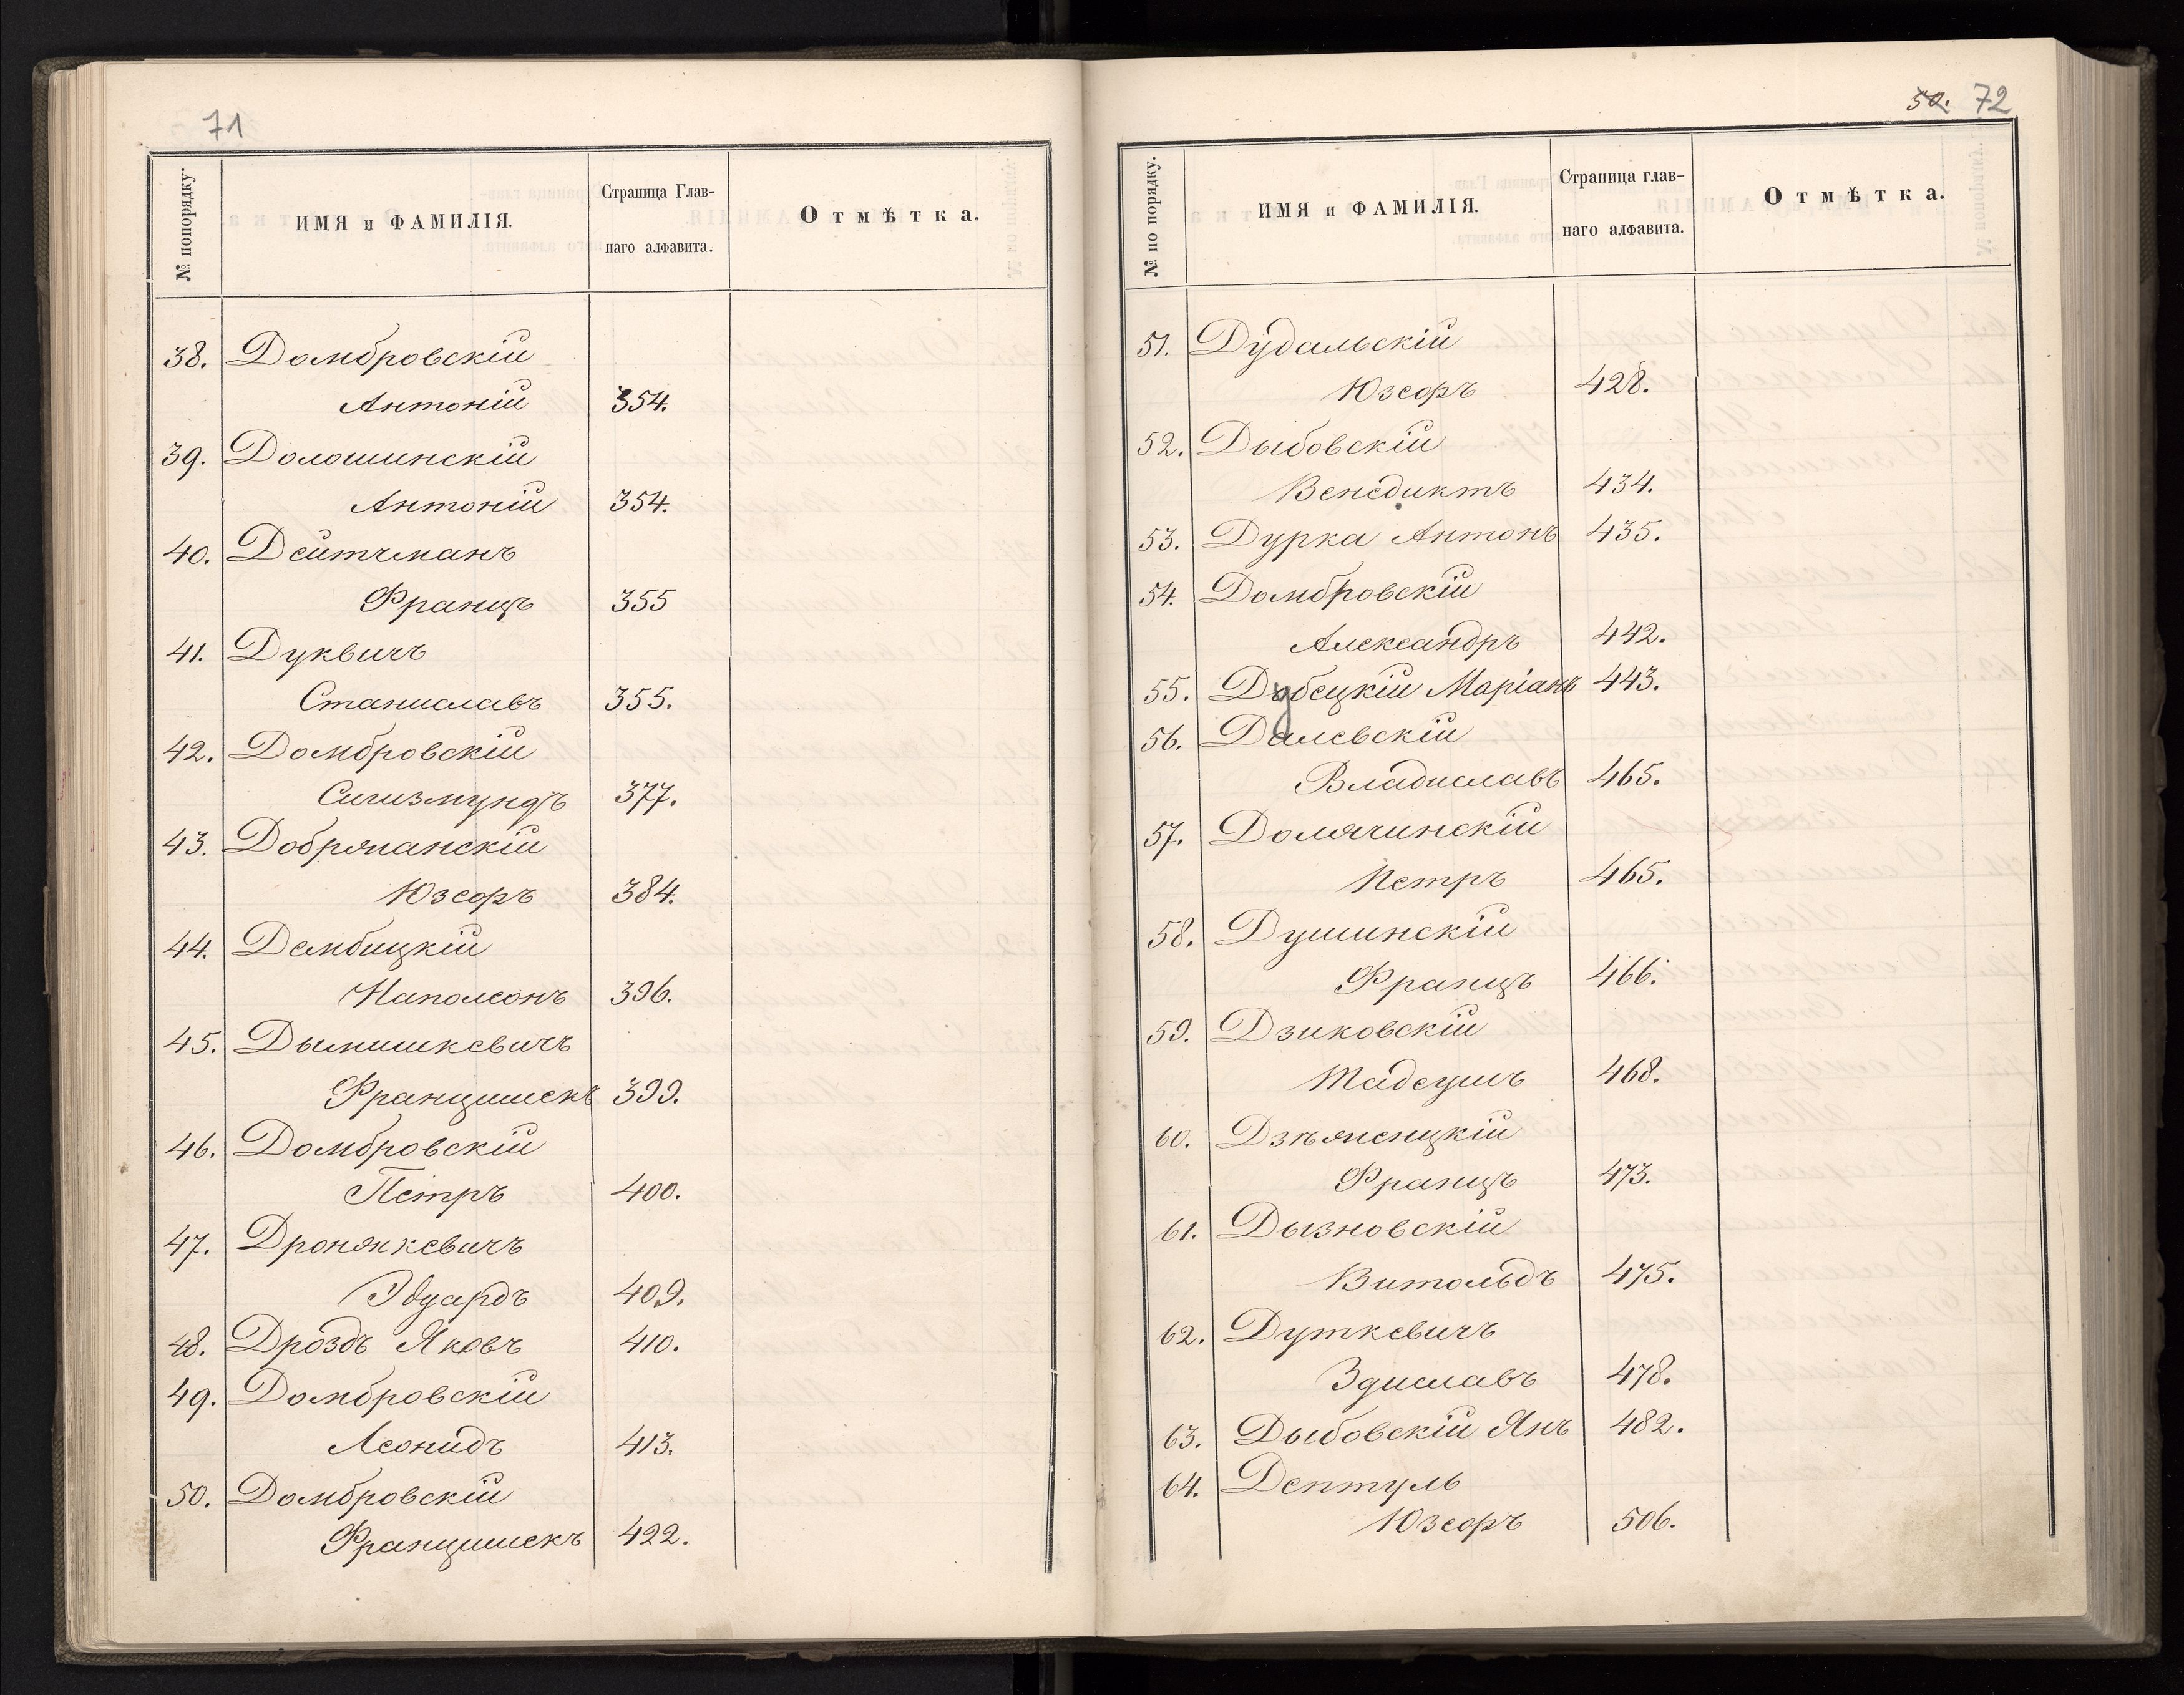 71
№ попорядку.
ИМЯ и ФАМИЛІЯ.
Страница Глав-
наго алфавита.
Отмѣтка.
38. Домбровскій
Антоній 354.
39. Доломинскій
Антоній 354.
40. Дейтчманъ
Францъ 355
41. Дуквичъ
Станиславъ 355.
42. Домбровскій
Сигизмундъ 377.
43. Добрянанскій
Юзефъ 384.
44. Дембицкій
Наполеонъ 396.
45. Дымишкевичъ
Францишекъ 399.
46. Домбровскій
Петръ 400.
47. Дронякевичъ
Эдуардъ 409.
48. Дроздъ Яковъ 410.
49. Домбровскій
Леонидъ 413.
50. Домбровскій
Францишекъ 422.
50. 72
№ по порядку.
ИМЯ и ФАМИЛІЯ.
Страница глав-
наго алфавита.
Отмѣтка.
51. Дудальскій
Юзефъ 428.
52. Дыбовскій
Венедиктъ 434.
53. Дурка Антонъ 435.
54. Домбровскій
Александръ 442.
55. Дубецкій Маріанъ 443.
56. Далевскій
Владиславъ 465.
57. Домачинскій
Петръ 465.
58. Душинскій
Францъ 466.
59. Дзиковскій
Тадеушъ 468.
60.
Францъ 473.
61. Дызновскій
Витольдъ 475.
62. Дуткевичъ
Здиславъ 478.
63. Дыбовскій Янъ 482.
64. Дептуль
Юзефъ 506.